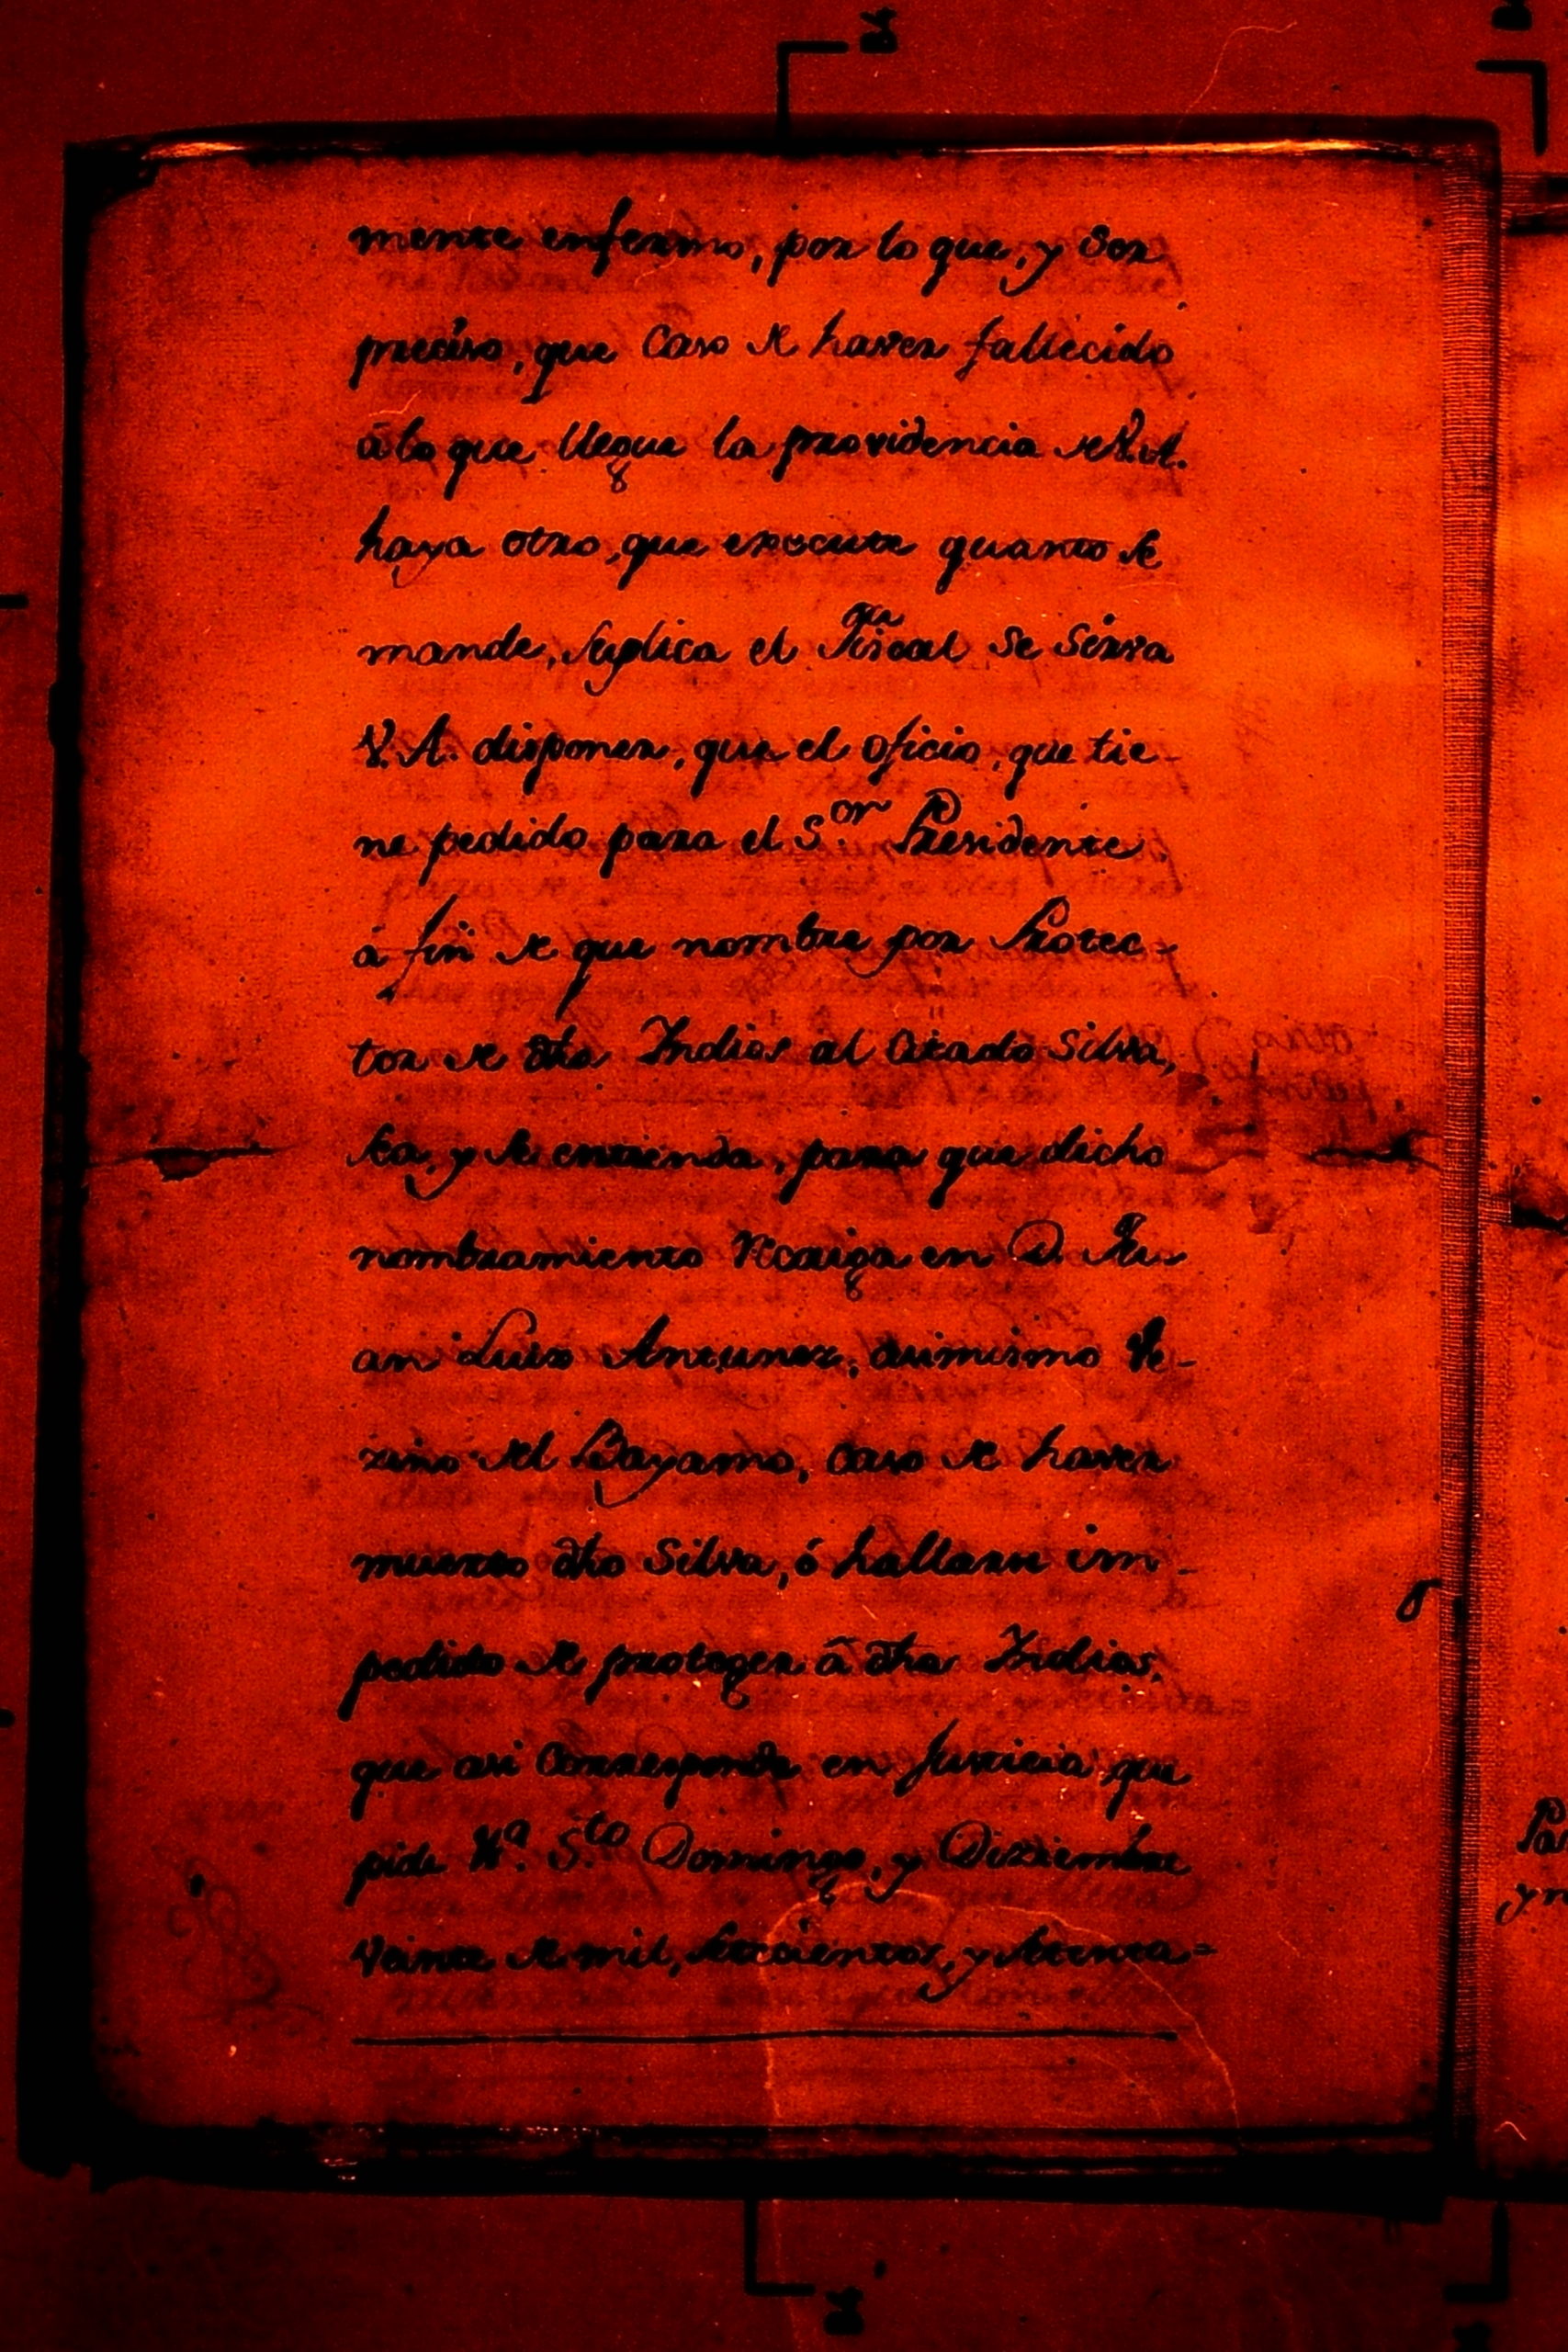 mente enfermo, por lo que, y Ser
preciso, que Caso de haver fallecido
â lo que llegue la providencia de V.A.
haya otro, que execute quanto se
mande, Suplica el Fiscal Se Sirva
V.A. disponer, que el oficio, que tie-
ne pedido para el S.or Presidente
á fin de que nombre por Protec-
tor de dhos Indios al Citado Silva,
sea, y se entienda, para que dicho
nombramiento recaiga en D. Ju-
an Luis Antunez, asimismo Ve-
zino del Bayamo, caso de haver
muerto dho Silva, ó hallarse im-
pedido de proteger â dhos Indios,
que asi Corresponde en Justicia que
pide S.to Domingo, y Diziembre
veinte de mil, setecientos, y setenta=